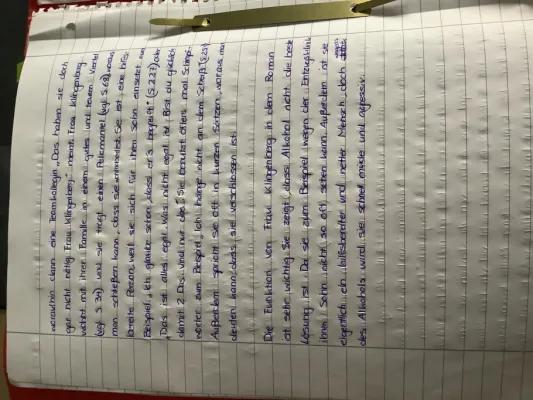 woraufhin dann eine Teamkollegin „Das haben sie doch
gar nicht nötig Frau Klingenberg." meint. Frau Klingenberg
wohnt mit ihrer Familie in einem guten und teuren Viertel
(vgl. S. 34) und sie trägt einen Pelzmantel (vgl. S. 68), woraus
man schließen kann, dass sie wohlhabend ist. Sie ist eine
Person, weil sie sich für ihren Sohn einsetzt
Beispiel „Ich glaube schon, dass er's begreift." (S. 227) oder
„Das ist alles egal. Was nicht egal ist: Bist du glücklich
damit? Das. Und nur das." Sie benutzt öfters mal Schimpf-
wörter zum Beispiel „Ich hänge nicht an dem Scheiß."
Außerdem spricht sie oft in kurzen Sätzen, woraus man
deuten kann, dass sie verschlossen ist.
Die Funktion von Frau Klingenberg in dem Roman
ist sehr wichtig. Sie zeigt, dass Alkohol nicht die beste
Lösung ist. Da sie zum Beispiel wegen der Entzugsklinik
ihren Sohn nicht so oft sehen kann. Außerdem ist sie
eigentlich ein hilfsbereiter und netter Mensch, doch wegen
des Alkohols wird sie schnell und aggressiv.